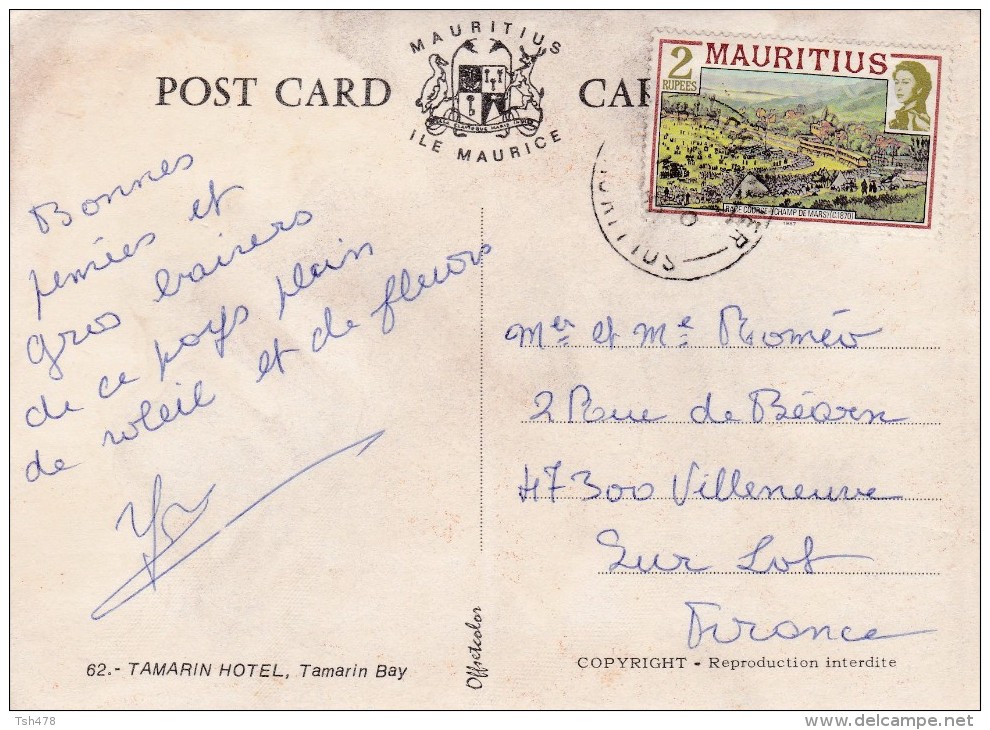 MAURITIUS
POST CARD
CAR
ILE MAURICE
2
RUPEES
MAURITIUS
RACE COURSE (CHAMP DE MARS) (C1870)
Bonnes
pensées et
gros baisers
de ce pays plain
de soleil et de fleurs
Mer et Me Roméo
2 Rue de Béarn
47300 Villeneuve
Sur Lot
France
62.- TAMARIN HOTEL, Tamarin Bay
Offsetcolor
COPYRIGHT - Reproduction interdite
Tsh478
www.delcampe.net